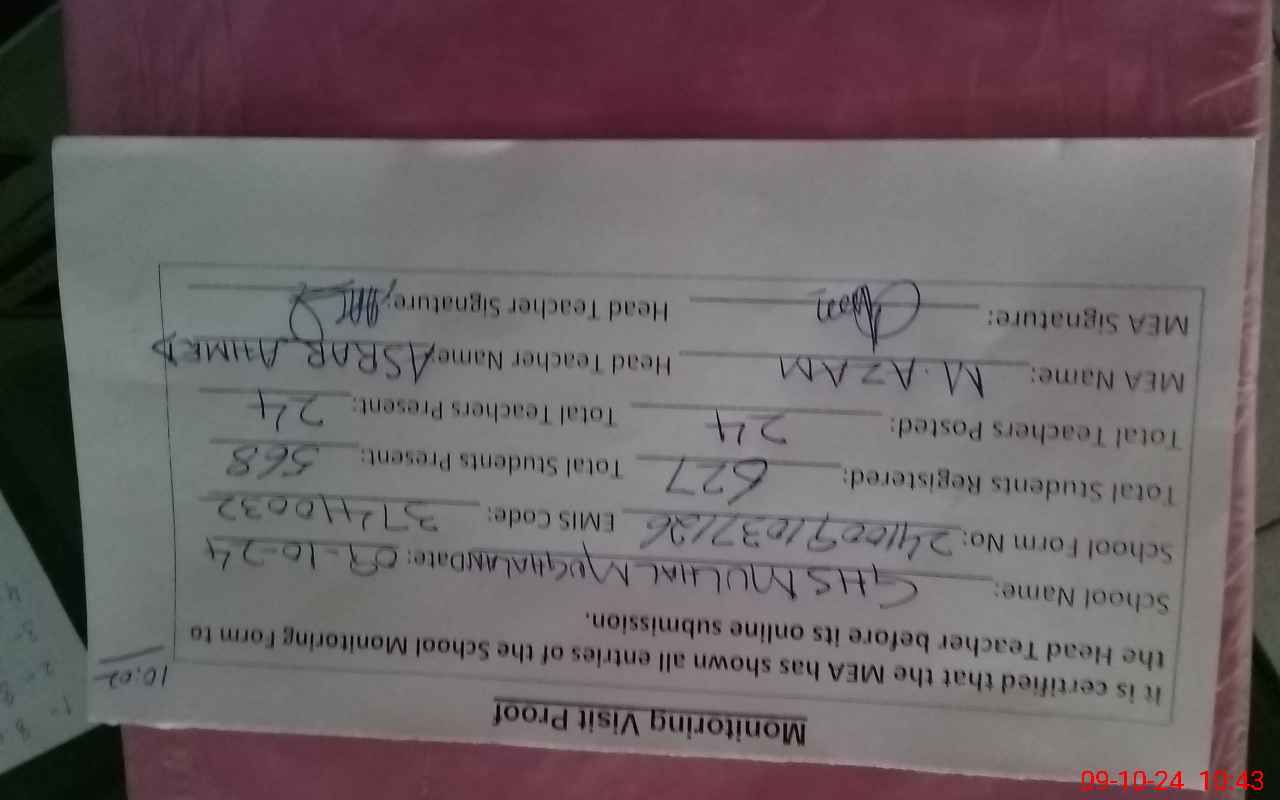 Monitoring Visit Proof
10:02
It is certified that the MEA has shown all entries of the School Monitoring Form to
the Head Teacher before its online submission.
School Name: GHS MULHAL MUGHALAN Date: 09-10-24
School Form No: 2410091037126 EMIS Code: 37410032
Total Students Registered: 627 Total Students Present: 568
Total Teachers Posted: 24 Total Teachers Present: 24
MEA Name: M. AZAM Head Teacher Name: ASRAR AHMED
MEA Signature: Head Teacher Signature:
09-10-24 10:43